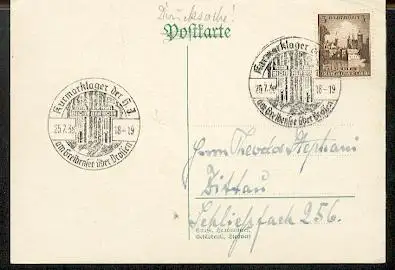 Drucksache!
Postkarte
Kurmarklager der H.J.
25.7.38 18-19
am Greibensee über Drossen
Kurmarklager der
25.7.38 18-19
am Greibensee über Drossen
Herrn Theodor Stephani
Zittau
Schließfach 256.